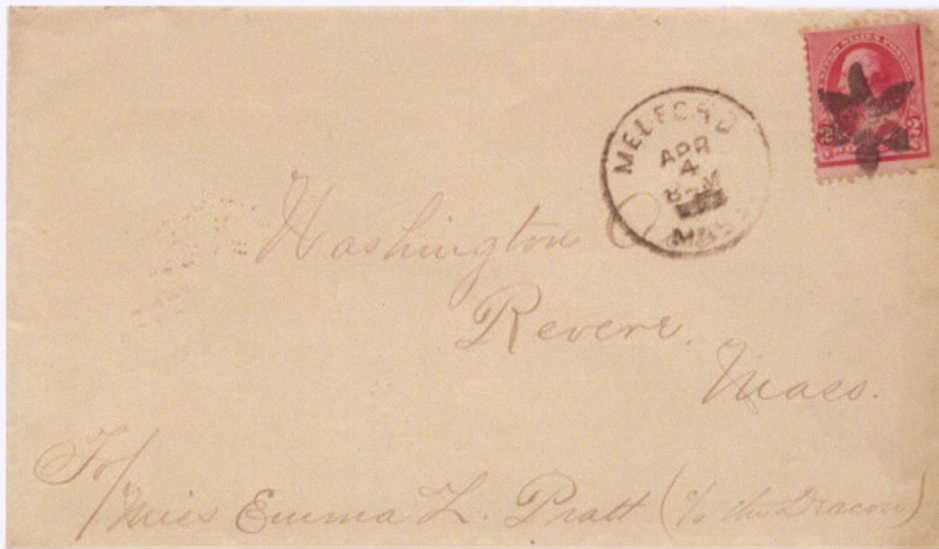 MEDFORD
APR
4
8 AM
MASS
2 2
Washington
Revere.
Mass.
To/
Miss Emma L. Pratt (% the Deacon)